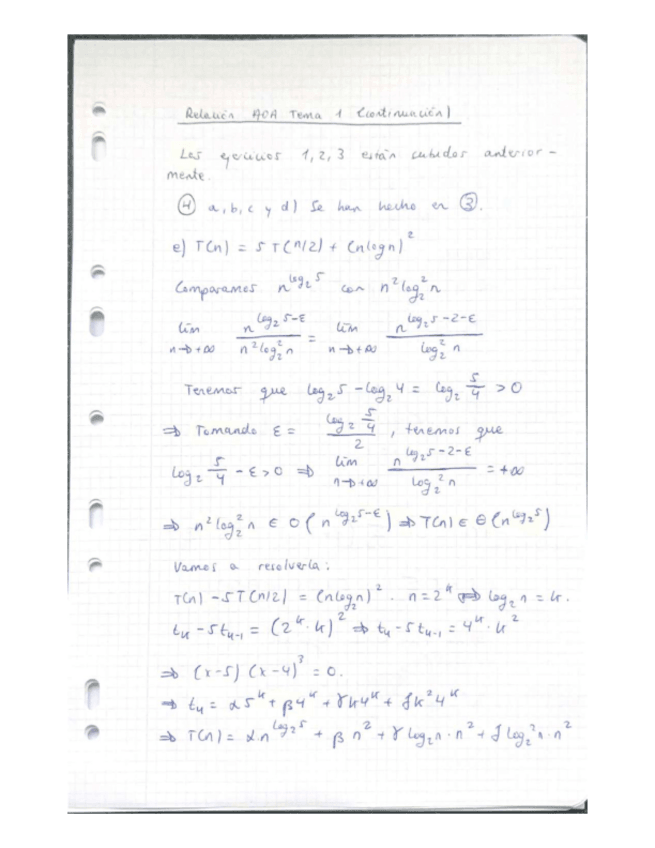 Relación ADA Tema 1 (continuación)
Los ejercicios 1, 2, 3 están subidos anterior-
mente.
④ a, b, c y d) Se han hecho en ③.
e) T(n) = 5T(n/2) + (nlogn)²
Comparamos n^{log₂5} con n²log₂²n
lim_{n→+∞} n^{log₂5-ε} / (n²log₂²n) = lim_{n→+∞} n^{log₂5-2-ε} / (log₂²n)
Tenemos que log₂5 - log₂4 = log₂ 5/4 > 0
⇒ Tomando ε = (log₂ 5/4) / 2, tenemos que
log₂ 5/4 - ε > 0 ⇒ lim_{n→+∞} n^{log₂5-2-ε} / (log₂²n) = +∞
⇒ n²log₂²n ∈ O(n^{log₂5-ε}) ⇒ T(n) ∈ Θ(n^{log₂5})
Vamos a resolverla:
T(n) - 5T(n/2) = (nlog₂n)². n = 2^k ⇒ log₂n = k.
t_k - 5t_{k-1} = (2^k · k)² ⇒ t_k - 5t_{k-1} = 4^k · k²
⇒ (x-5)(x-4)³ = 0.
⇒ t_k = α5^k + β4^k + γk4^k + δk²4^k
⇒ T(n) = αn^{log₂5} + βn² + γlog₂n·n² + δlog₂²n·n²